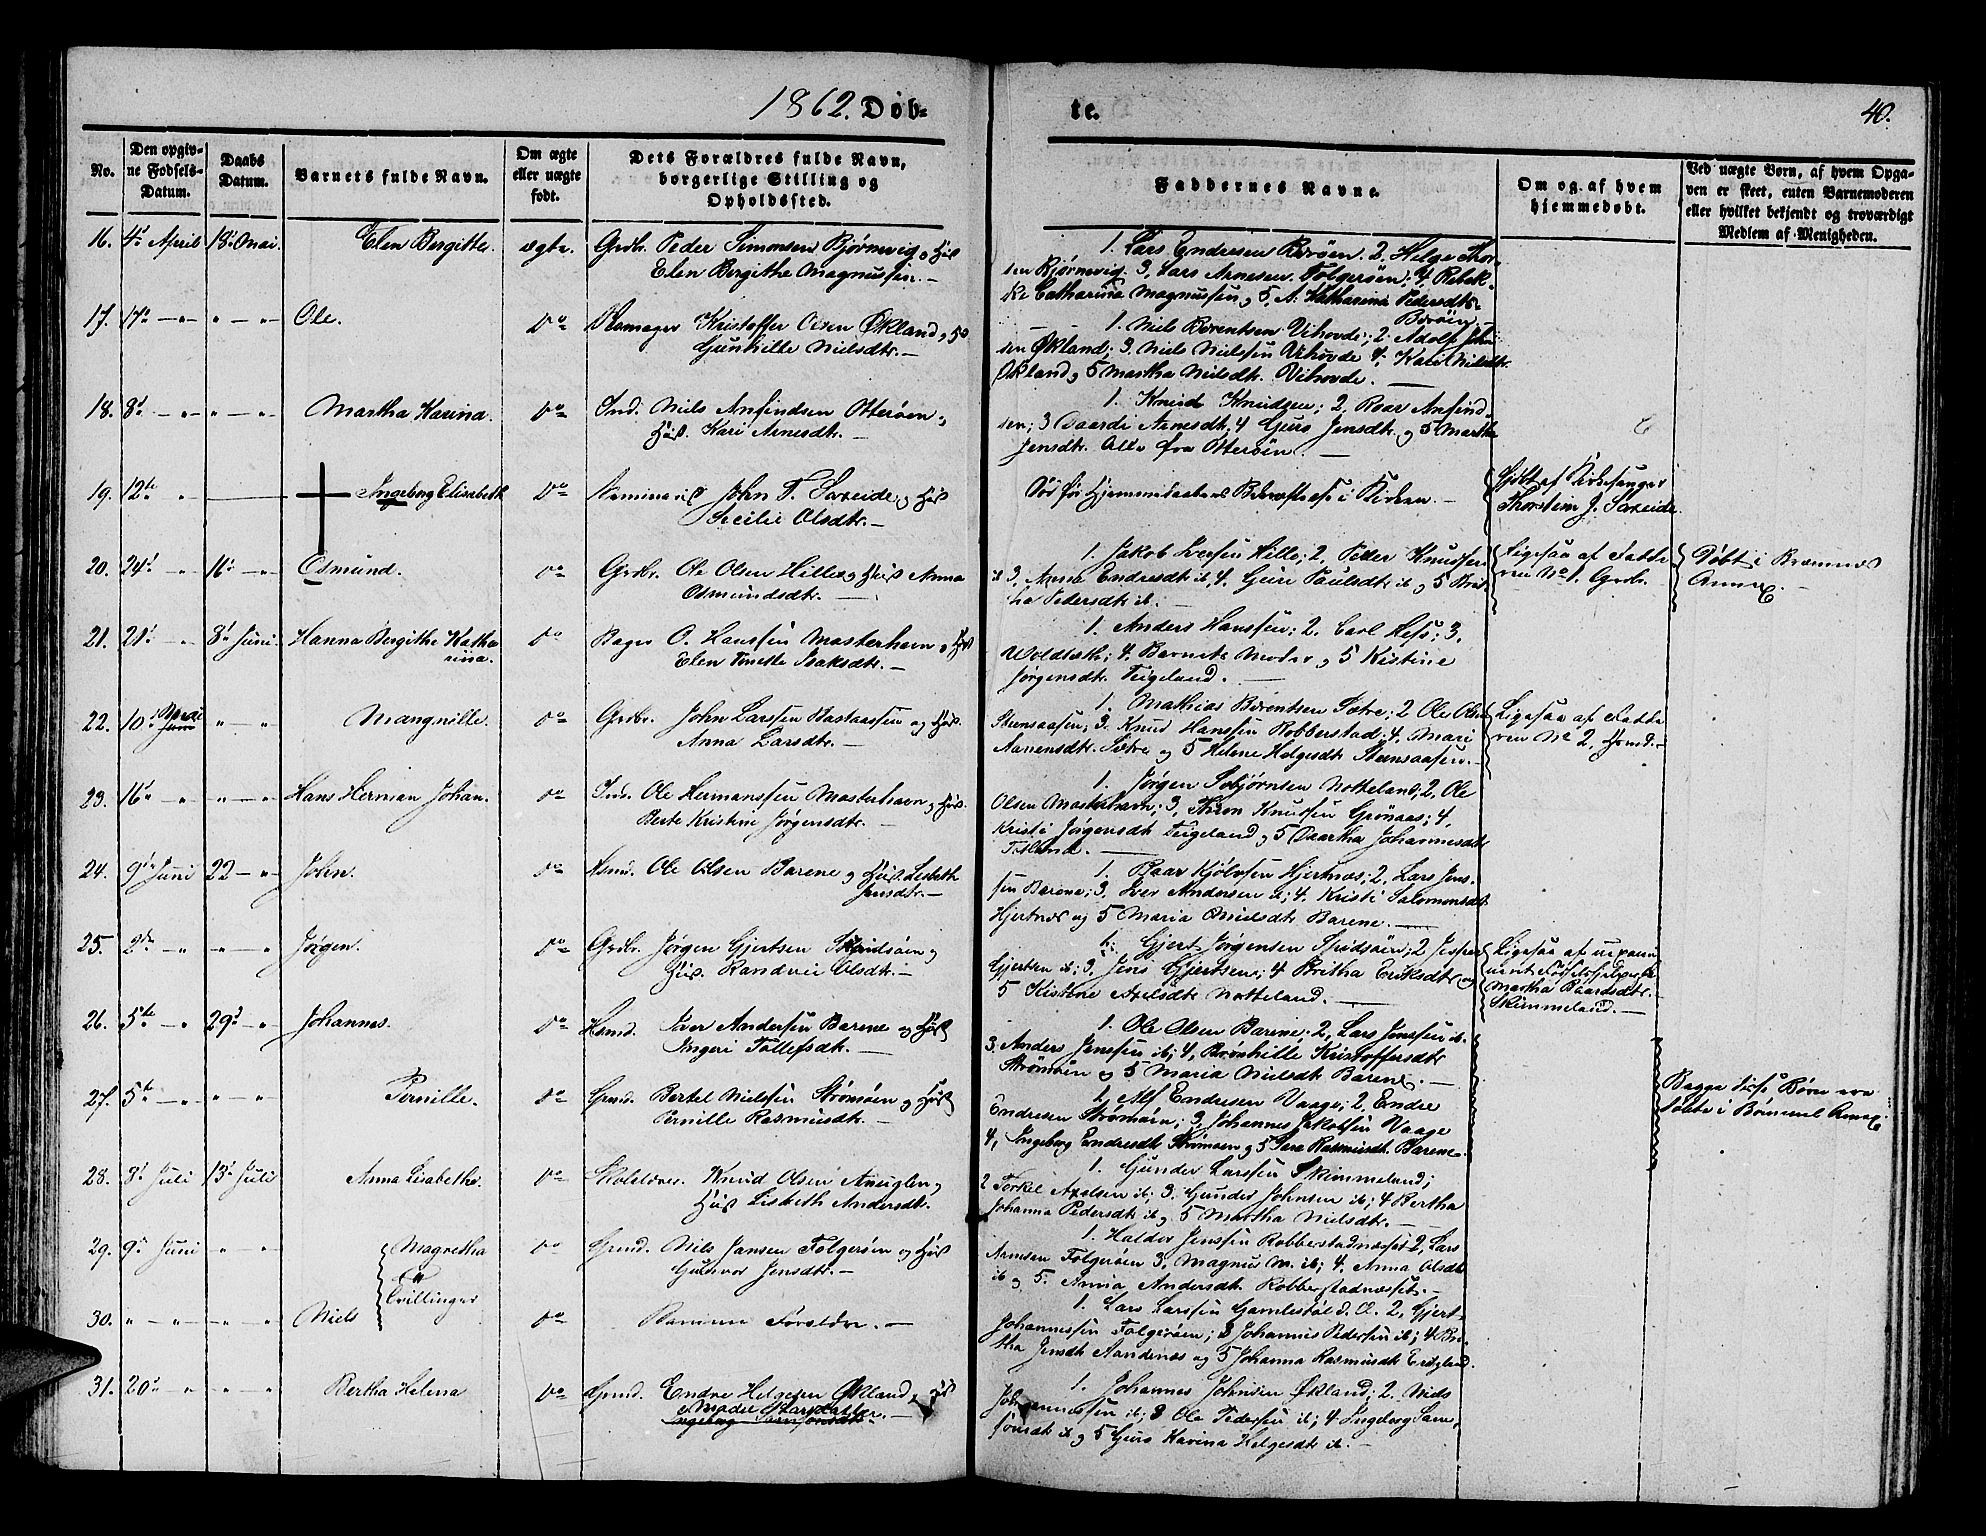 1862. Døb-
te.
40.
No.
Den opgiv-
ne Fødsels-
Datum.
Daabs
Datum.
Barnets fulde Navn.
Om ægte
eller uægte
født.
Dets Forældres fulde Navn,
borgerlige Stilling og
Opholdssted.
Faddernes Navne.
Om og af hvem
hjemmedøbt.
Ved uægte Børn, af hvem Opga-
ven er skeet, enten Barnemoderen
eller hvilket bekjendt og troværdigt
Medlem af Menigheden.
16. 4de April 18de Mai. Elen Bergitte. ægte. Grdbr. Peder Simonsen Bjørnevig og Hus
Elen Bergithe Magnussen.
1. Lars Endresen Børøen. 2. Helge Thor-
sen Bjørnevig. 3. Lars Arnesen Folgerøen; 4. Rebek-
ke Catharina Magnussen og 5. A. Katharina Pedersdtr
Børøen
17. 17de Ole. Do Kristoffer Olsen Økland og
Gunhille Nielsdtr.
1. Niels Børentsen Vihovde; 2. Adolf John
sen Økland; 3. Niels Nielsen Vihovde 4. Kari Nielsdtr
Økland og 5 Martha Nielsdtr. Vihovde.
18. 8de Martha Karina. Do Ind. Niels Anfindsen Otterøen og
Hus. Kari Arnesdtr.
1. Knud Knudsen; 2. Roar Anfind-
sen; 3 Arnesdtr; 4 Guro Jensdtr. og 5 Martha
Jensdtr. Alle fra Otterøen.
19. 12te Ingeborg Elisabeth Do Seminarist John T. Søreide og Hus
Secilie Olsdtr.
Død før Hjemmedaabens Bekræftelse i Kirken.
Hjdbt af Kirkesanger
Thorstein J. Søreide.
20. 24de 16de Osmund. Do Grdbr. Ole Olsen Hille og Hus Anna
Osmundsdtr.
1. Jakob Iversen Hille; 2. Peder Knudsen
ib 3. Anna Endresdtr ib 4. Guri Paulsdtr ib og 5 Brit-
he Pedersdtr ib.
Ligesaa af Fadde
ren No 1. Grdb.
Døbt i Bremnes
Annex.
21. 21de 8de Juni Hanna Bergithe Katha
rina. Do Bager O. Hanssen Mosterhavn og Hus
Elen Isaksdtr.
1. Anders Hanssen; 2. Carl Hess; 3.
4. Barnets Moder og 5 Kistine
Jørgensdtr. Teigeland.
22. 10de Juni Mangnille. Do Grdbr. John Larssen Bastaasen og Hus.
Anna Larsdtr.
1. Mathias Børentsen Sætre; 2 Ole Olsen
Steensaasen; 3. Knud Hanssen Robberstad; 4. Mari
Sætre og 5 Helene Helgesdtr Steensaasen.
Ligesaa af Fadde
ren No 2,
23. 16de Hans Herman Johan. Do Ind. Ole Hermanssen Mosterhavn og Hus.
Berte Kristine Jørgensdtr.
1. Jørgen Notteland; 2. Ole
Olsen Mosterhavn; 3. Knudsen Grønaas; 4.
Kristi Jørgensdtr Teigeland og 5 Johannesdtr
24. 9de Juni 22 John. Do Hsmd. Ole Olsen Barene og Hus. Lisbeth
Jensdtr.
1. Roar Hjertnæs; 2. Lars Jens-
sen Barene; 3. Iver Andersen ib; 4. Kristi Salomonsdtr
Hjertnæs og 5 Maria Nielsdtr Barene.
25. 2den Jørgen. Do Grdbr. Jørgen Gjertsen og
Hus. Randvei Olsdtr.
1. Gjert Jørgensen 2 Jesper
Gjertsen ib; 3. Jens Gjertsen; 4 Britha Eriksdtr og
5 Kistine Axelsdtr Notteland.
Ligesaa af uexami
neret Fødselshjelperske
Martha Baardsdtr.
Skimmeland.
26. 5te 29de Johannes. Do Hsmd. Iver Andersen Barene og Hus
Ingeri Tollefsdtr.
1. Ole Olsen Barene; 2. Lars Jenssen ib.
3. Anders Jenssen ib; 4, Brønhille Kristoffersdtr
Strømøen og 5 Maria Nielsdtr Barene.
27. 5te Pernille. Do Grmd. Bertel Nielssen Strømøen og Hus
Pernille Rasmusdtr.
1. Alf Endresen Vaage; 2. Endre
Endresen Strømøen; 3. Johannes Jakobsen Vaage
4, Ingeborg Endresdtr Strømøen og 5 Sara Rasmusdtr. Barene.
Begge disse Børn ere
døbte i Bømmel Annex.
28. 8de Juli 13de Juli Anna Lisabethe. Do Skolelærer. Knud Olsen og
Hus Lisbeth Andersdtr.
1. Gunder Larssen Skimmeland;
2 Torkel Axelsen ib; 3. Gunder Johnsen ib; 4 Bertha
Johanna Pedersdtr ib og 5 Martha Nielsdtr.
29. 9de Juni Magretha
Tvillinger
Do Grmd. Niels Jansen Folgerøen og Hus
Gunhvor Jensdtr.
1. Haldor Jenssen Robberstadnæsset 2, Lars
Arnesen Folgerøen 3, Magnus M. ib; 4. Anna Olsdtr
ib og 5. Anna Andersdtr Robberstadnæsset.
30. Niels Do Samme Forældre.
1. Lars Larssen Gamlestøl 2, Gjert
Johannessen Folgerøen; 3 Johannes Pedersen ib; 4 Bri-
tha Jensdtr Sandenæs og 5 Johanna Rasmusdtr
31. 20de Bertha Helena Do Grmd. Endre Helgesen Økland, og Hus
1. Johannes Johnsen Økland; 2. Niels
Johannessen ib; 3 Ole Pedersen ib; 4 Ingeborg Sam-
sonsdtr ib og 5 Guro Karina Helgesdtr ib.